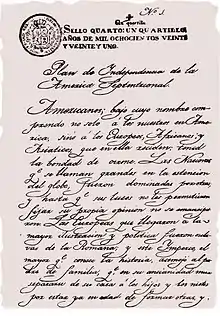 Nº 1.
Un quartillo
SELLO QUARTO: UN QUARTILLO
AÑOS DE MIL OCHOCIENTOS VEINTE
Y VEINTE Y UNO.
Plan de Independencia de la
América Septentrional.
Americanos, bajo cuyo nombre com-
prendo no solo a los nacidos en Amé-
rica, sino a los Europeos, Africanos y
Asiaticos que en ella residen: tened
la bondad de oirme. Las Naciones
que se llaman grandes en la extencion
del globo, fueron dominadas por otras;
y hasta que sus luces no les permitieron
fijar su propia opinion no se emanciparon
Las Europeas que llegaron a la
mayor ilustracion y politica fueron escla-
vas de la Romana; y este Imperio, el
mayor que conoce la historia, asemejó al pa-
dre de familia, que en su ancianidad mira
separarse de su casa a los hijos y los nietos
por estar ya en edad de formar otras y